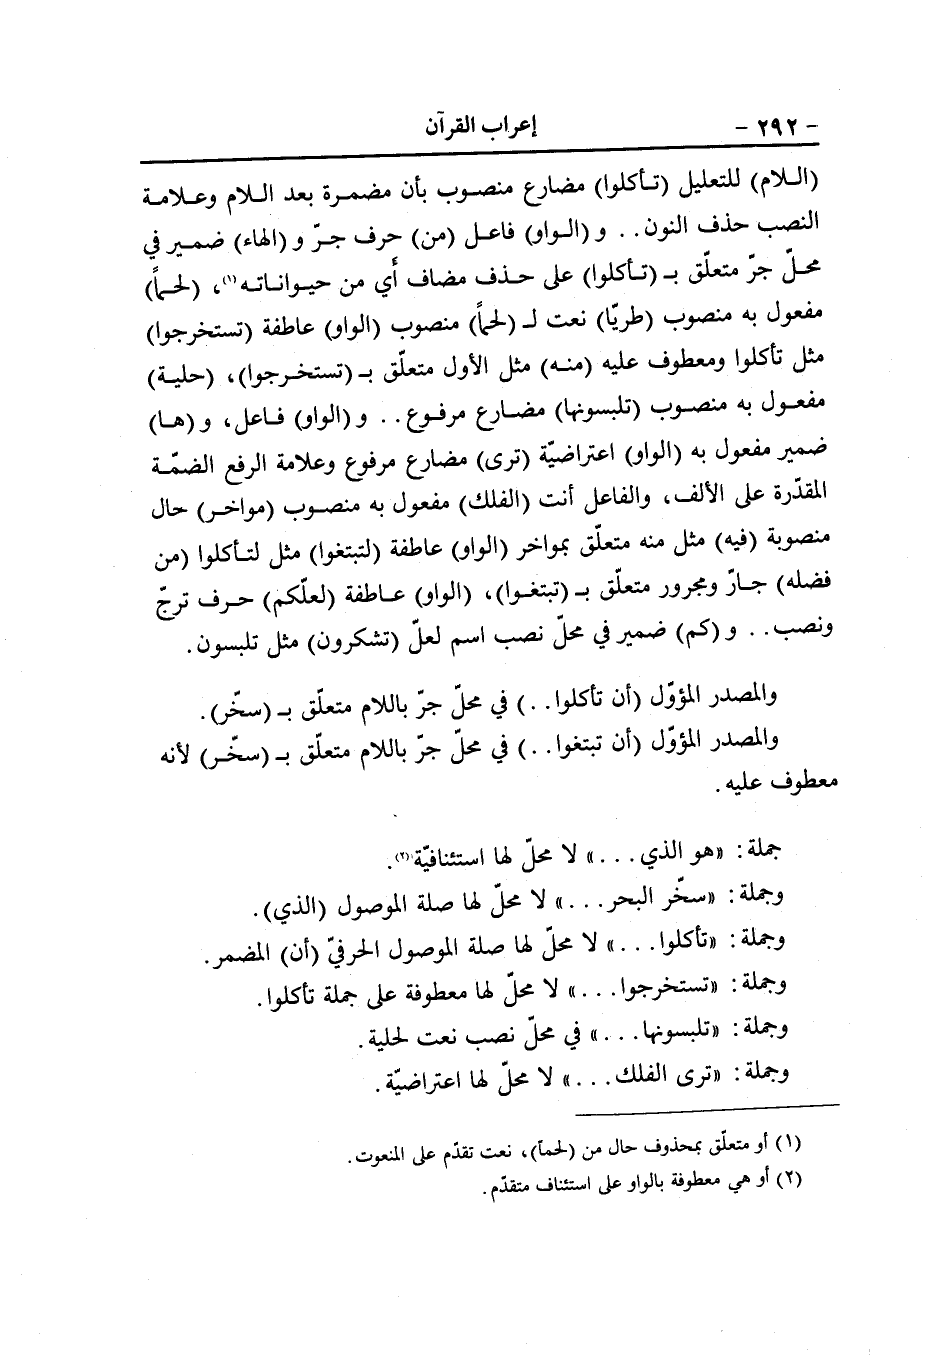 - ٢٩٢ -
إعراب القرآن
(الـلام) للتعليل (تـأكلوا) مضارع منصوب بأن مضمرة بعد الـلام وعـلامـة
النصب حذف النون . . و (الـواو) فاعـل (من) حرف جـرّ و (الهاء) ضمـير في
محـلّ جرّ متعلّق بـ (تـأكلوا) على حـذف مضاف أَي من حيـوانـاتـه⁽¹⁾، (لحـماً)
مفعول به منصوب (طريّا) نعت لـ (لحماً) منصوب (الواو) عاطفة (تستخرجوا)
مثل تأكلوا ومعطوف عليه (منـه) مثل الأول متعلّق بـ (تستخـرجوا)، (حليـة)
مفعـول به منصـوب (تلبسونها) مضـارع مرفـوع . . و (الواو) فـاعل، و (هـا)
ضمير مفعول به (الواو) اعتراضيّة (ترى) مضارع مرفوع وعلامة الرفع الضمّـة
المقدّرة على الألف، والفاعل أنت (الفلك) مفعول به منصـوب (مواخـر) حال
منصوبة (فيه) مثل منه متعلّق بمواخر (الواو) عاطفة (لتبتغوا) مثل لتـأكلوا (من
فضله) جـارّ ومجرور متعلّق بـ (تبتغـوا)، (الواو) عـاطفة (لعلّكم) حـرف ترجّ
ونصب . . و (كم) ضمير في محلّ نصب اسم لعلّ (تشكرون) مثل تلبسون .
والمصدر المؤوّل (أن تأكلوا . .) في محلّ جرّ باللام متعلّق بـ (سخّر).
والمصدر المؤوّل (أن تبتغوا . .) في محلّ جرّ باللام متعلّق بـ (سخّـر) لأنه
معطوف عليه .
جملة : «هو الذي . . . » لا محلّ لها استئنافيّة⁽²⁾.
وجملة : «سخّر البحر . . . » لا محلّ لها صلة الموصول (الذي).
وجملة : «تأكلوا . . . » لا محلّ لها صلة الموصول الحرفيّ (أن) المضمر .
وجملة : «تستخرجوا . . . » لا محلّ لها معطوفة على جملة تأكلوا .
وجملة : «تلبسونها . . . » في محلّ نصب نعت لحلية .
وجملة : «ترى الفلك . . . » لا محلّ لها اعتراضيّة .
(١) أو متعلّق بمحذوف حال من (لحماً)، نعت تقدّم على المنعوت .
(٢) أو هي معطوفة بالواو على استئناف متقدّم .